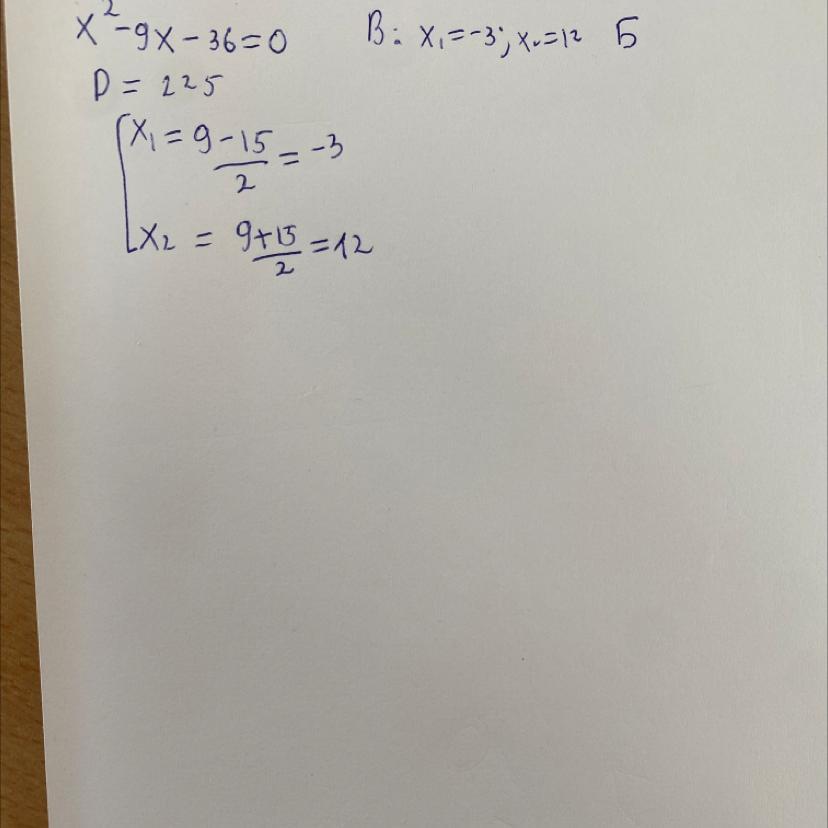 x²-9x-36=0 В: x₁=-3; x₂=12 Б
D=225
x₁=9-15/2=-3
x₂=9+15/2=12